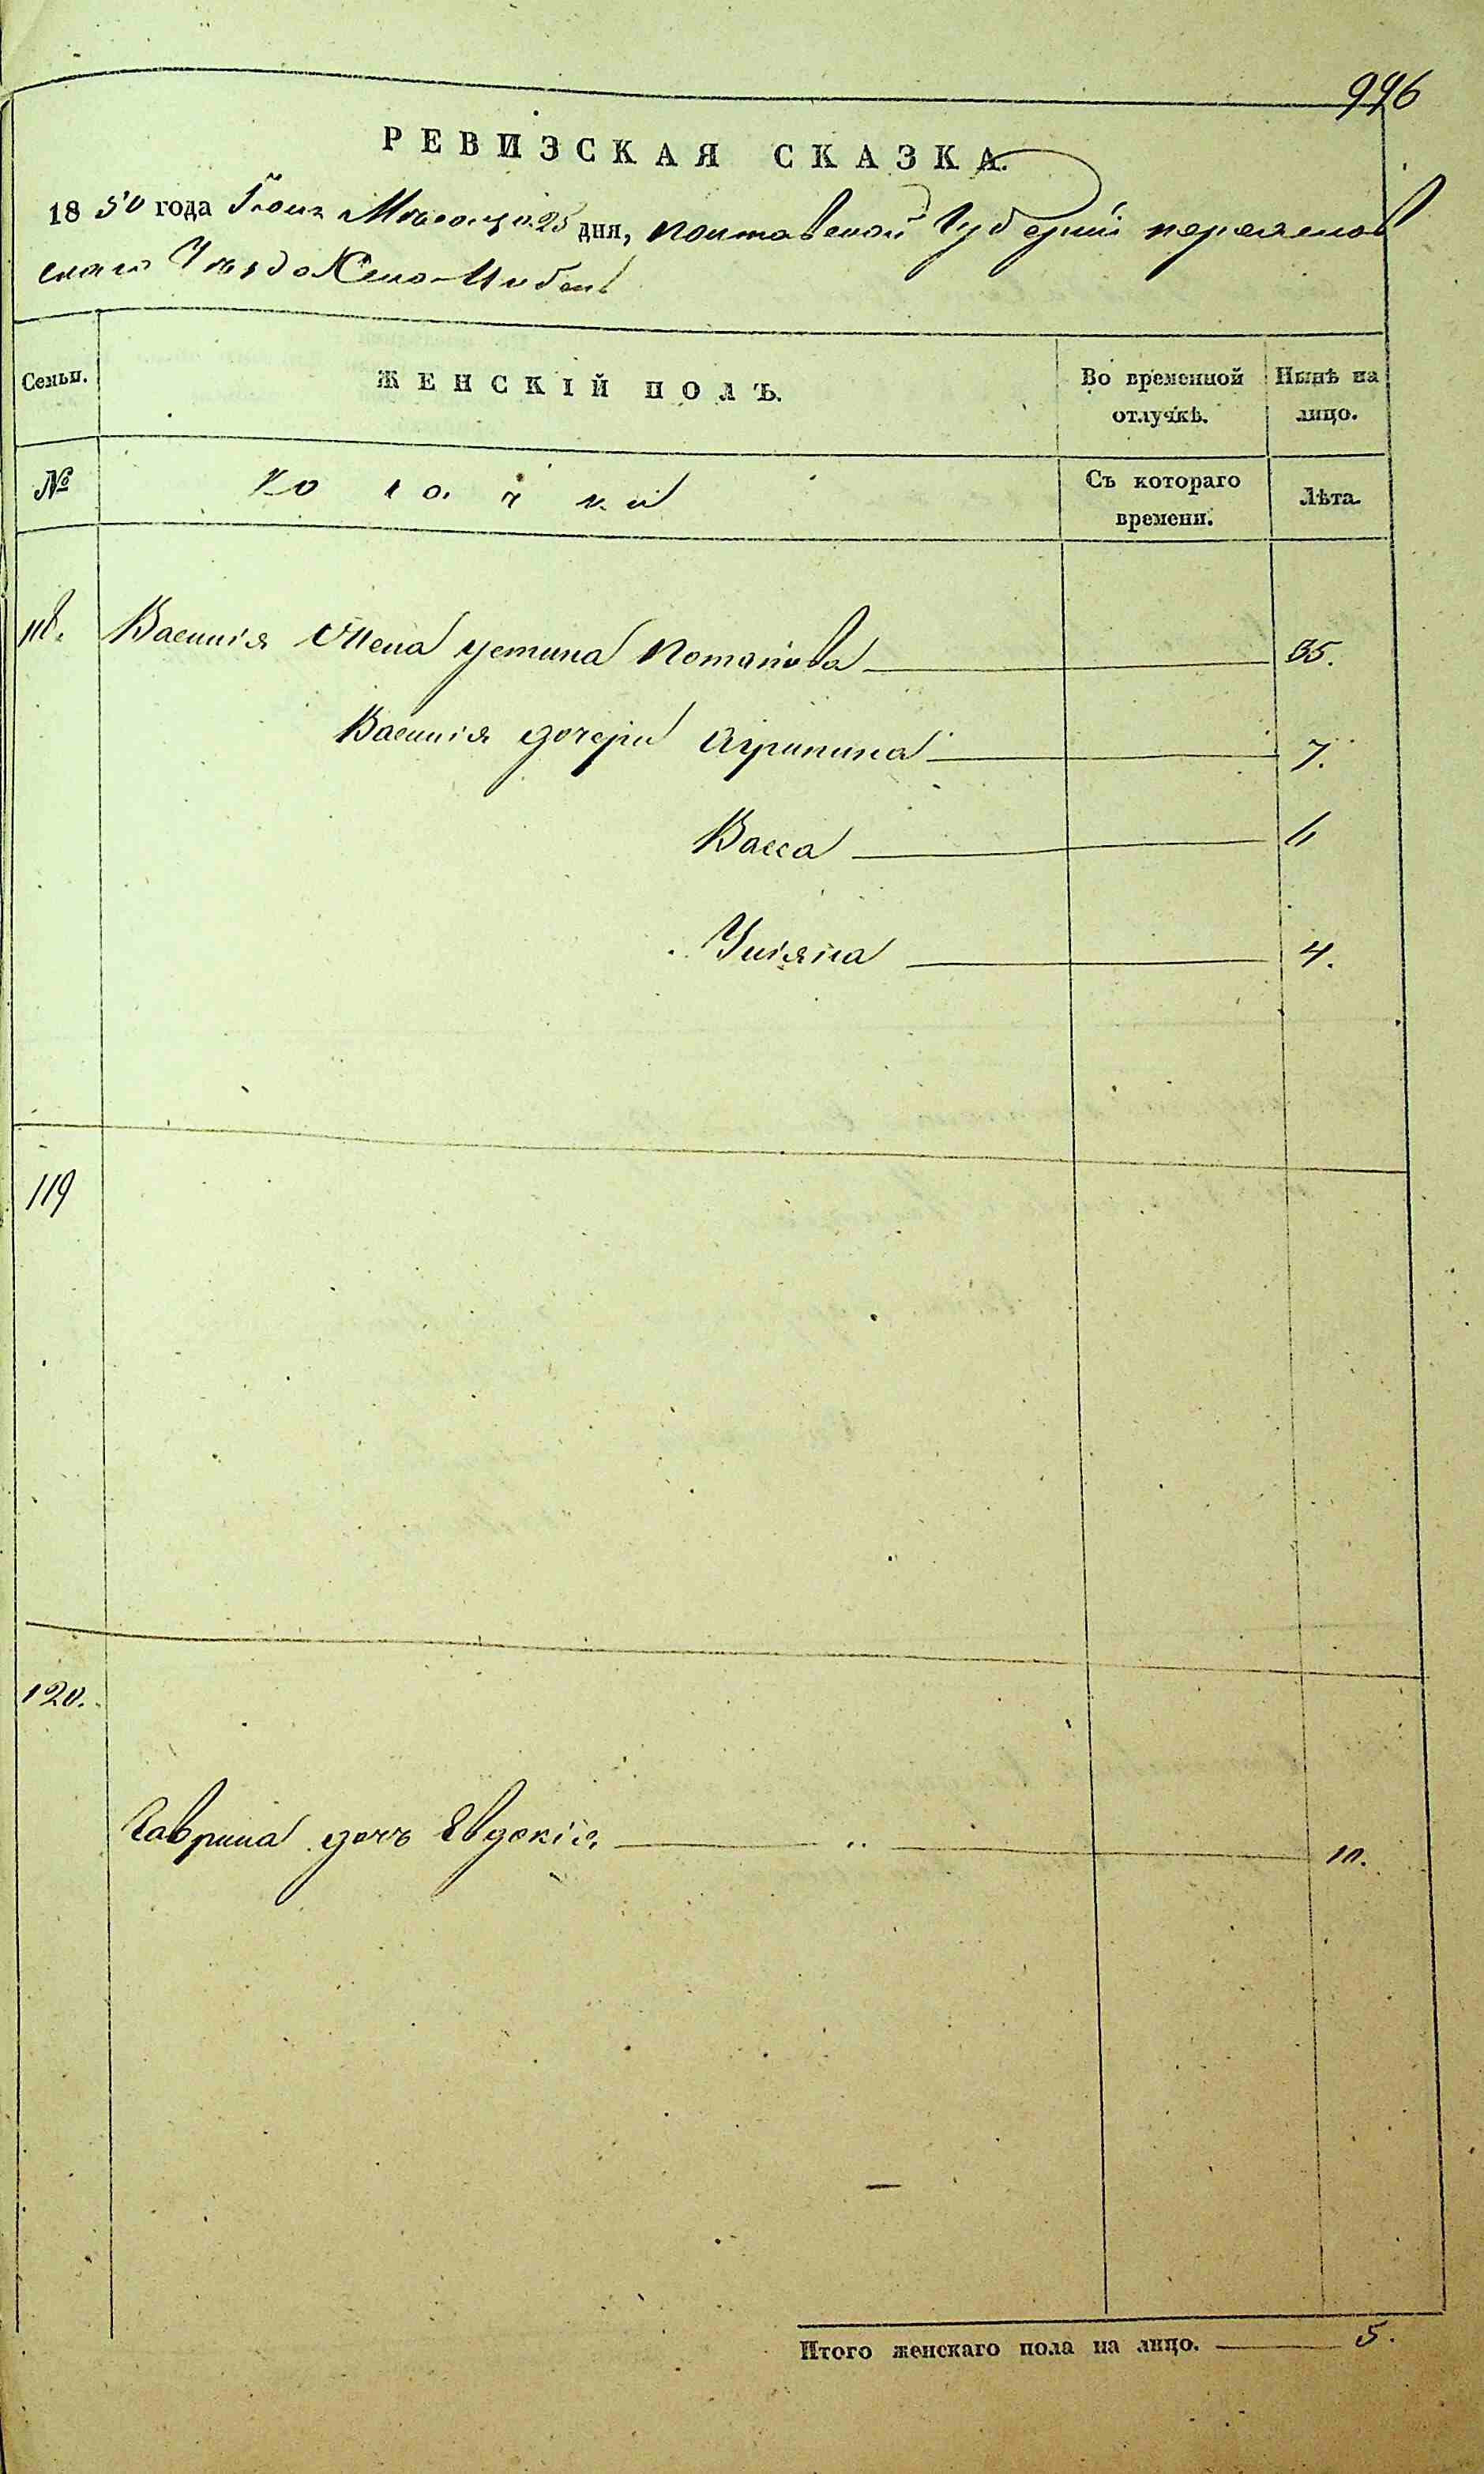 996
РЕВИЗСКАЯ СКАЗКА.
1850 года Іюня Мѣсяца 25 дня, полтавской Губерніи переяслов
скаго Уѣзда Села
Семьи. ЖЕНСКІЙ ПОЛЪ. Во временной отлучкѣ. Нынѣ на лицо.
№ козачки Съ котораго времени. Лѣта.
118. Василія жена устина Потапова 35.
Василія дочери Агрипина 7.
Васса 6
Уліяна 4.
119
120.
Гаврила дочь Евдокія 10.
Итого женскаго пола на лицо. 5.